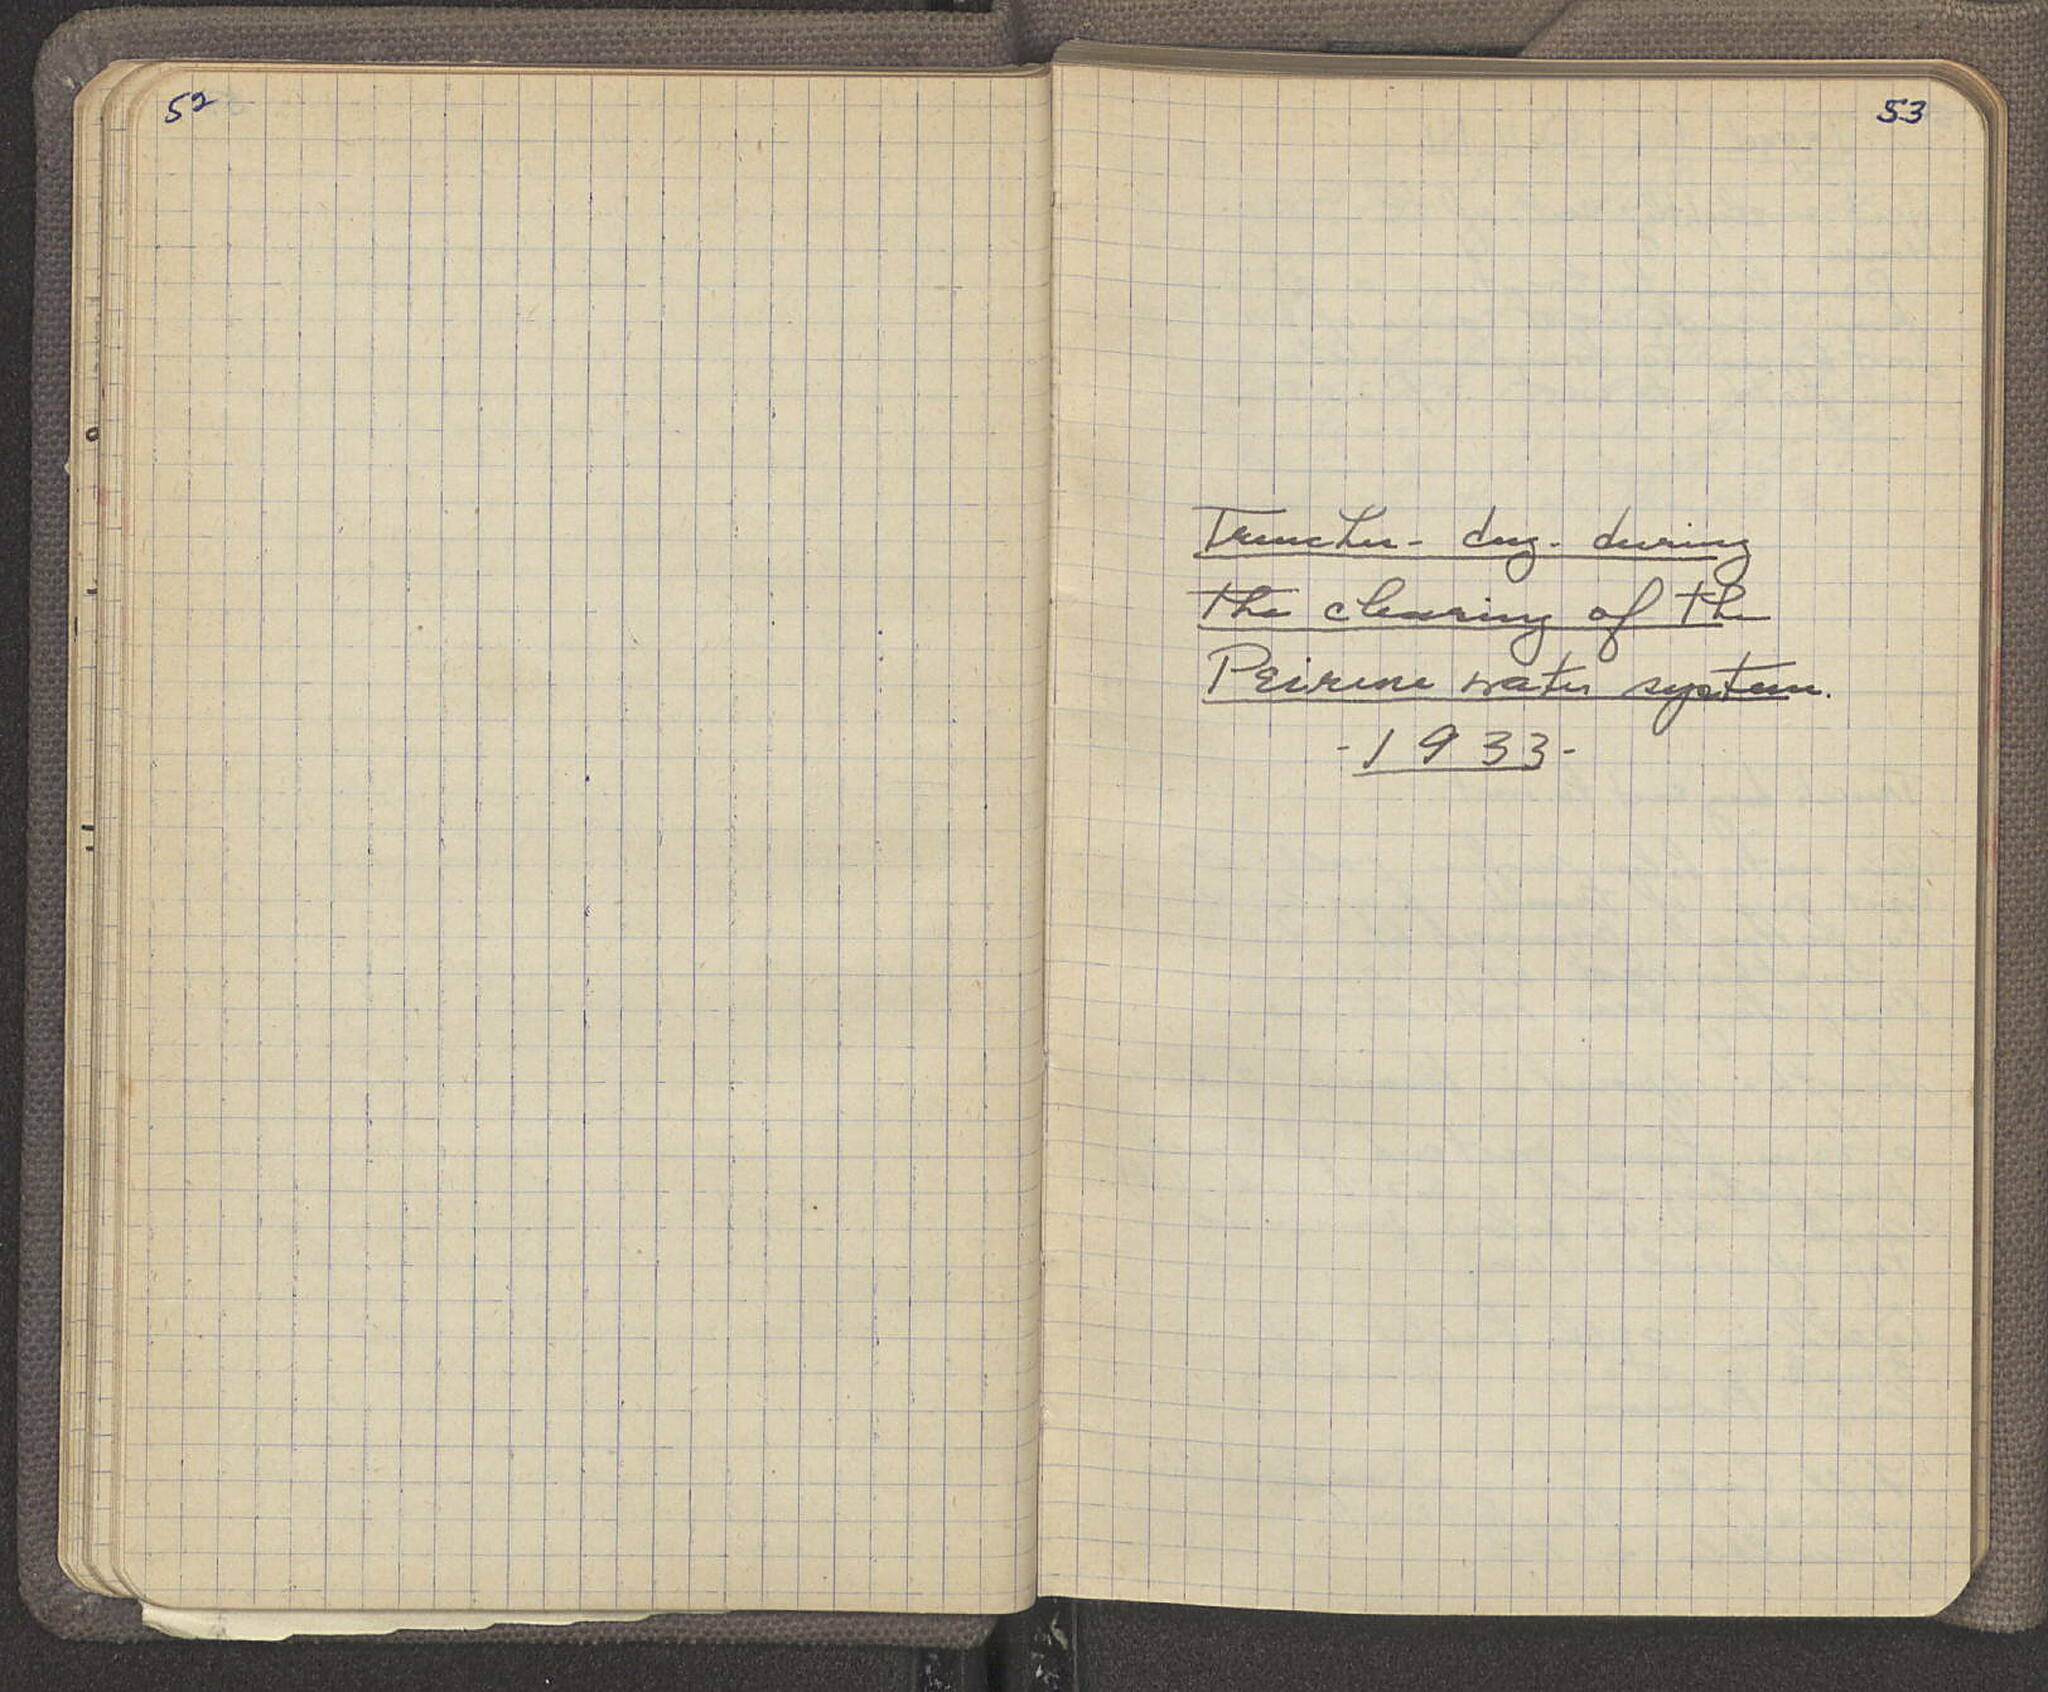 52
53
Trenches - dug - during
the clearing of the
Peirene water system.
- 1933 -